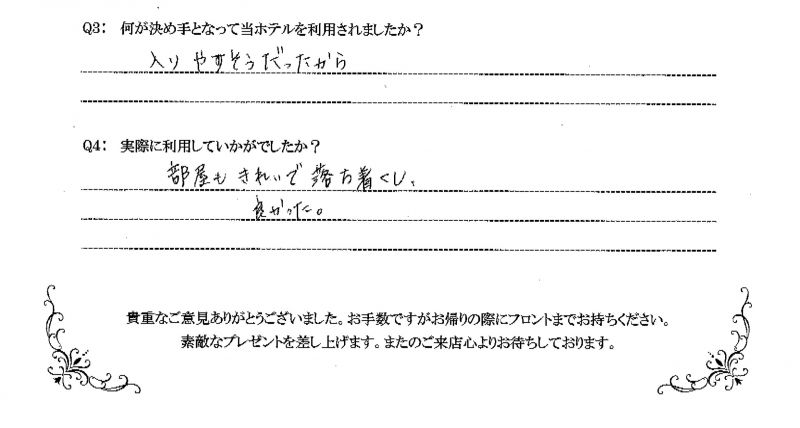 Q3: 何が決め手となって当ホテルを利用されましたか？
入りやすそうだったから
Q4: 実際に利用していかがでしたか？
部屋もきれいで落ち着くし、
良かった。
貴重なご意見ありがとうございました。お手数ですがお帰りの際にフロントまでお持ちください。
素敵なプレゼントを差し上げます。またのご来店心よりお待ちしております。